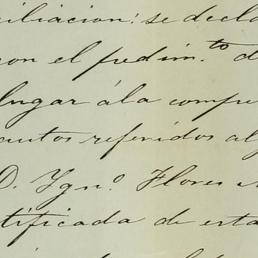 iliacion: se decla
con el pedim.to d
lugar ála compe
autos referidos al
D. Ygn.o Flores
tificada de esta